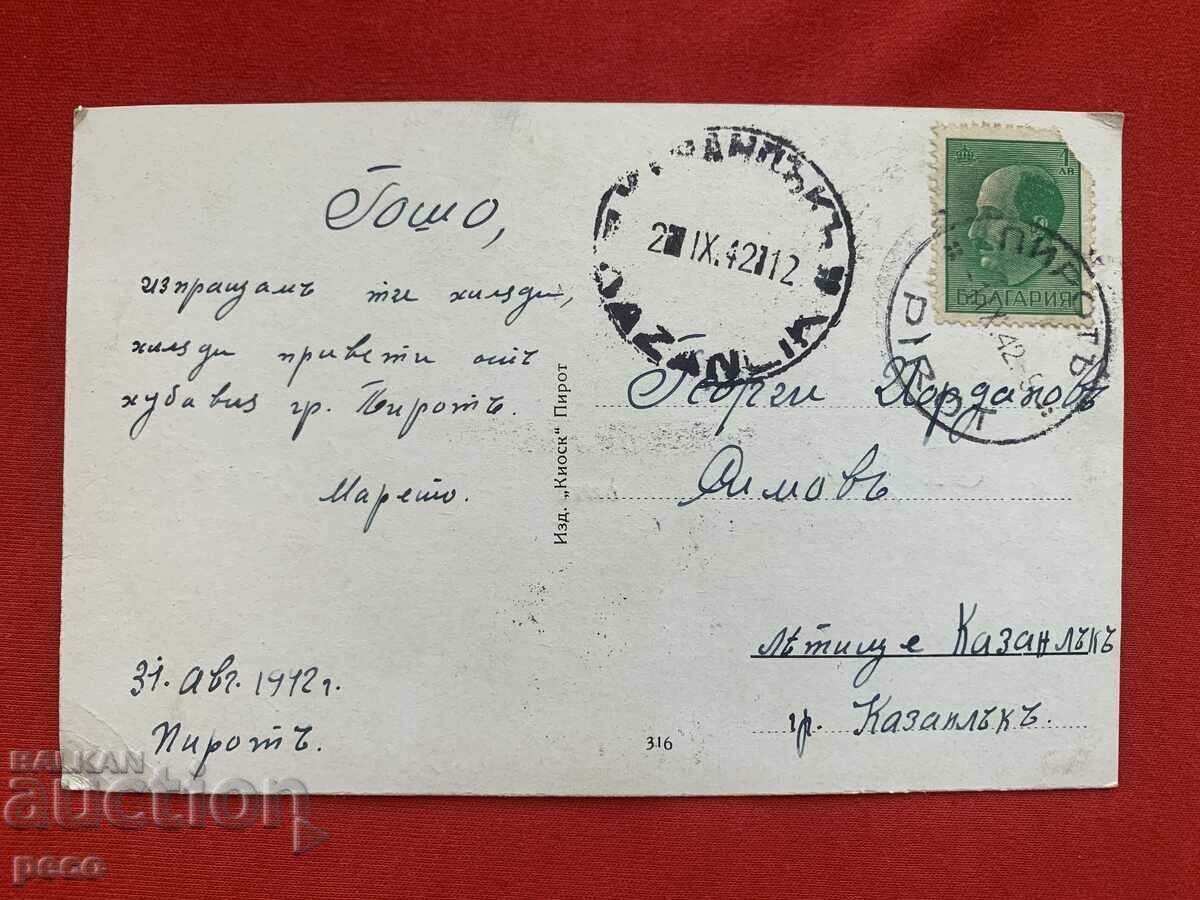 Гошо,
изпращамъ ти хиляди,
хиляди привети отъ
хубавия гр. Пиротъ.
Марето.
31. Авг. 1942 г.
Пиротъ.
Изд. „Киоск“ Пирот
316
2 IX.42 12
KAZANLIK
1
ЛВ
БЪЛГАРИЯ
ПИРОТЪ
IX.42
PIROT
Георги Йорданов
Симовъ
лѣтище Казанлъкъ
гр. Казанлъкъ.
BALKAN
auction
peco